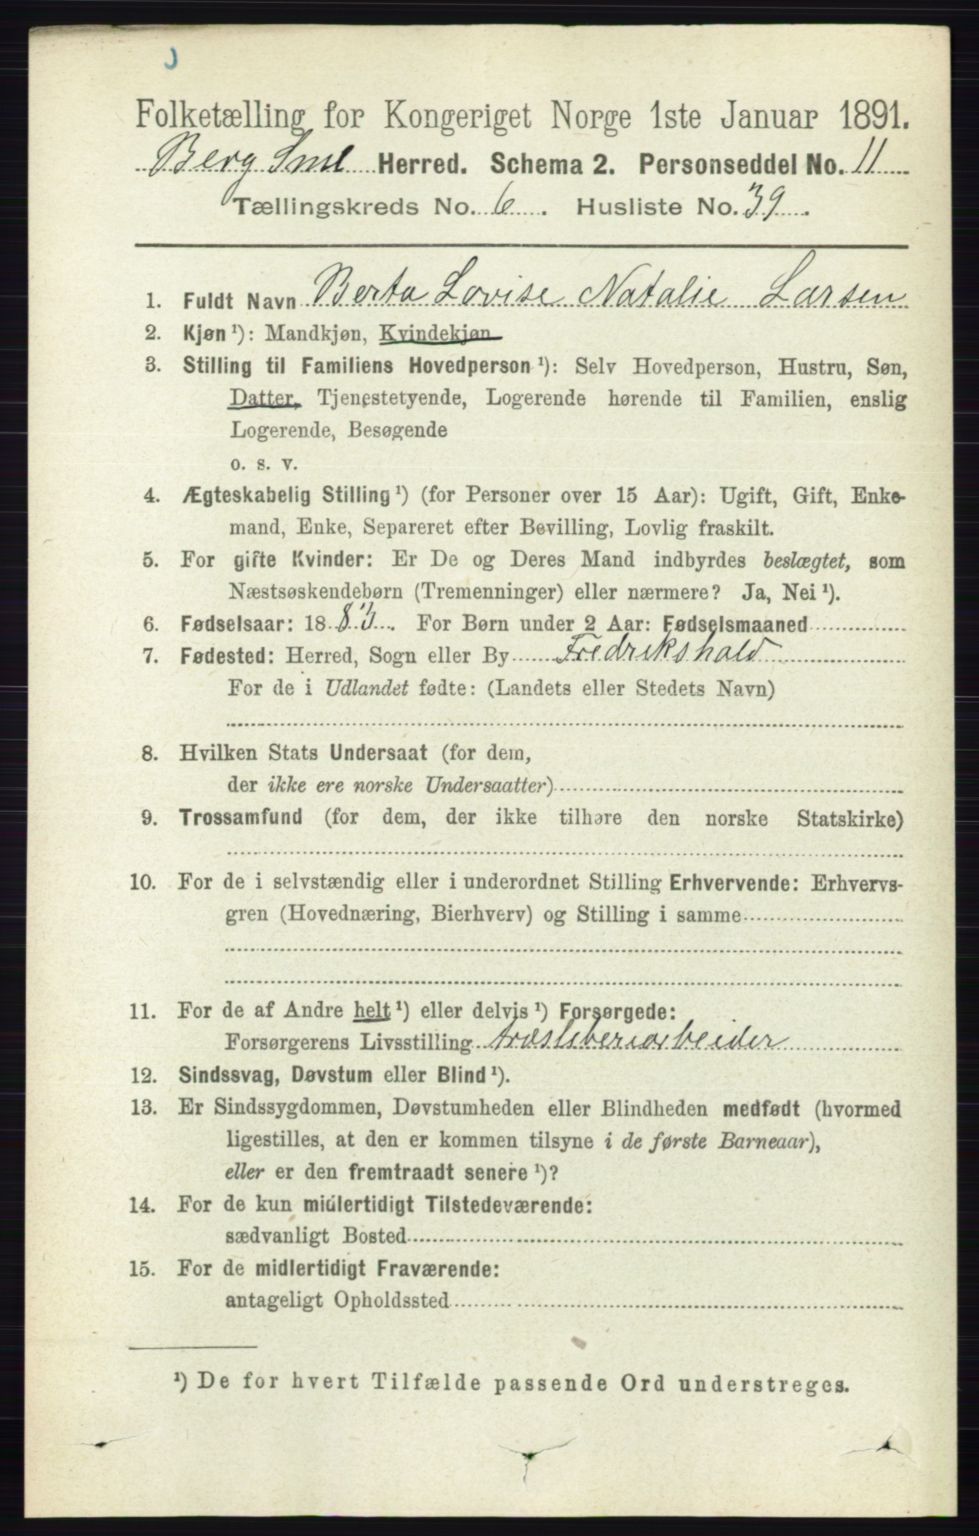 Folketælling for Kongeriget Norge 1ste Januar 1891.
Berg Sml Herred. Schema 2. Personseddel No. 11
Tællingskreds No. 6. Husliste No. 39.
1. Fuldt Navn Berta Lovise Natalie Larsen
2. Kjøn ¹): Mandkjøn, Kvindekjøn
3. Stilling til Familiens Hovedperson ¹): Selv Hovedperson, Hustru, Søn,
Datter, Tjenestetyende, Logerende hørende til Familien, enslig
Logerende, Besøgende
o. s. v.
4. Ægteskabelig Stilling ¹) (for Personer over 15 Aar): Ugift, Gift, Enke-
mand, Enke, Separeret efter Bevilling, Lovlig fraskilt.
5. For gifte Kvinder: Er De og Deres Mand indbyrdes beslægtet, som
Næstsøskendebørn (Tremenninger) eller nærmere? Ja, Nei ¹).
6. Fødselsaar: 1883. For Børn under 2 Aar: Fødselsmaaned
7. Fødested: Herred, Sogn eller By Fredrikshald
For de i Udlandet fødte: (Landets eller Stedets Navn)
8. Hvilken Stats Undersaat (for dem,
der ikke ere norske Undersaatter)
9. Trossamfund (for dem, der ikke tilhøre den norske Statskirke)
10. For de i selvstændig eller i underordnet Stilling Erhvervende: Erhvervs-
gren (Hovednæring, Bierhverv) og Stilling i samme
11. For de af Andre helt ¹) eller delvis ¹) Forsørgede:
Forsørgerens Livsstilling træsliberiarbeider
12. Sindssvag, Døvstum eller Blind ¹).
13. Er Sindssygdommen, Døvstumheden eller Blindheden medfødt (hvormed
ligestilles, at den er kommen tilsyne i de første Barneaar),
eller er den fremtraadt senere ¹)?
14. For de kun midlertidigt Tilstedeværende:
sædvanligt Bosted
15. For de midlertidigt Fraværende:
antageligt Opholdssted
¹) De for hvert Tilfælde passende Ord understreges.